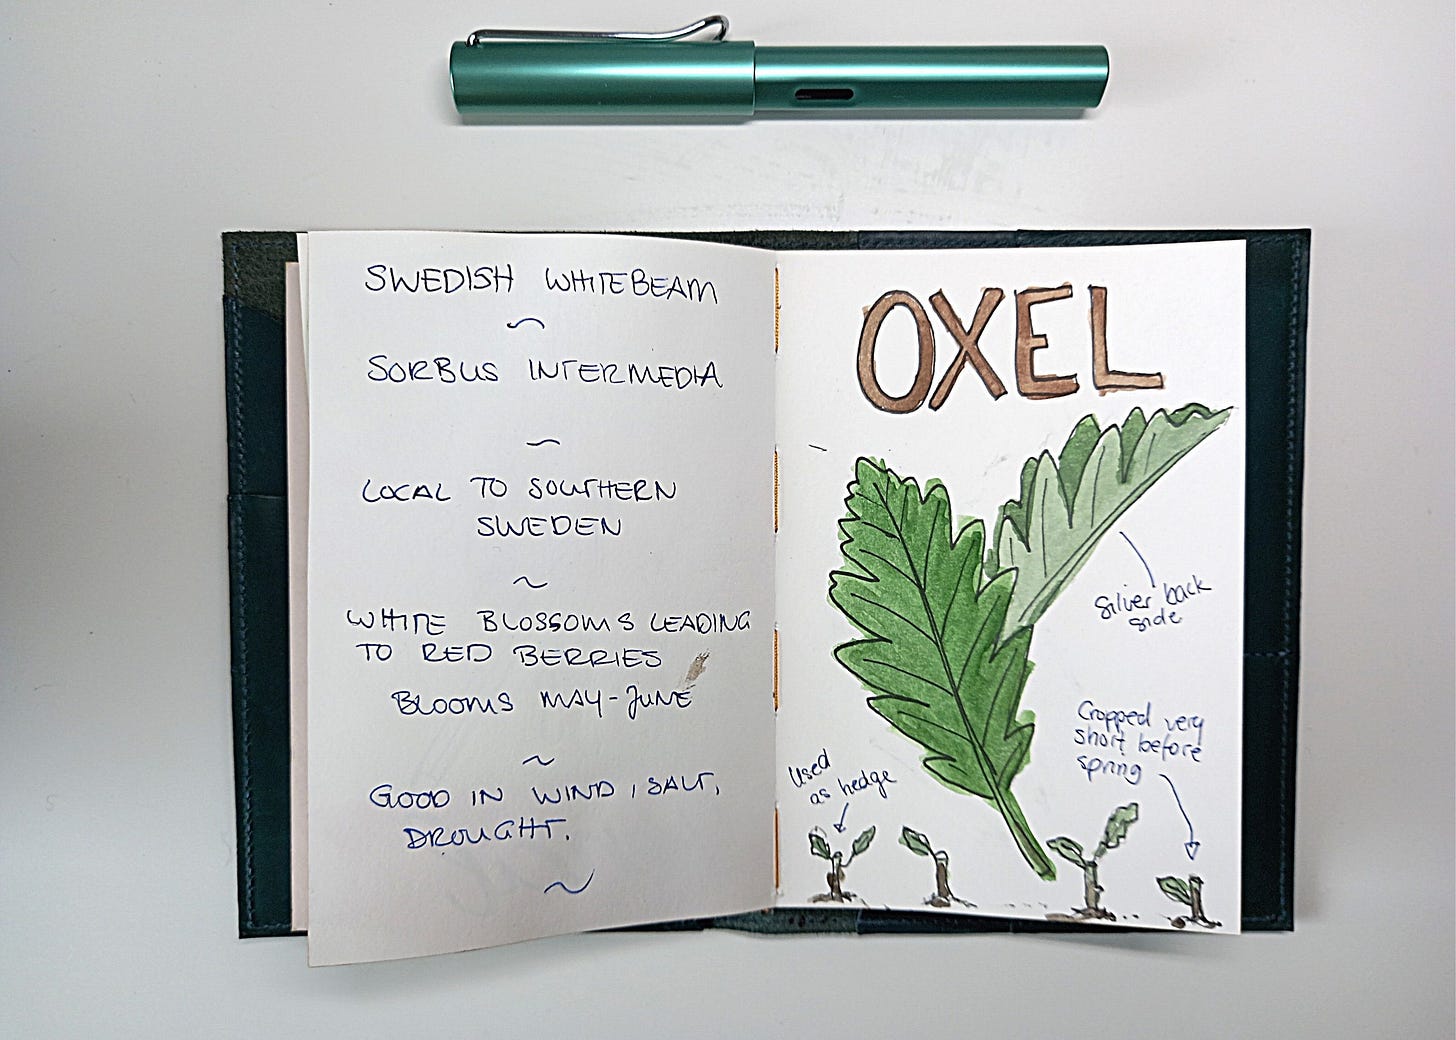 SWEDISH WHITEBEAM
SORBUS INTERMEDIA
LOCAL TO SOUTHERN
SWEDEN
WHITE BLOSSOMS LEADING
TO RED BERRIES
BLOOMS MAY-JUNE
GOOD IN WIND, SALT,
DROUGHT.
OXEL
Silver back
side
Cropped very
short before
spring
Used
as hedge